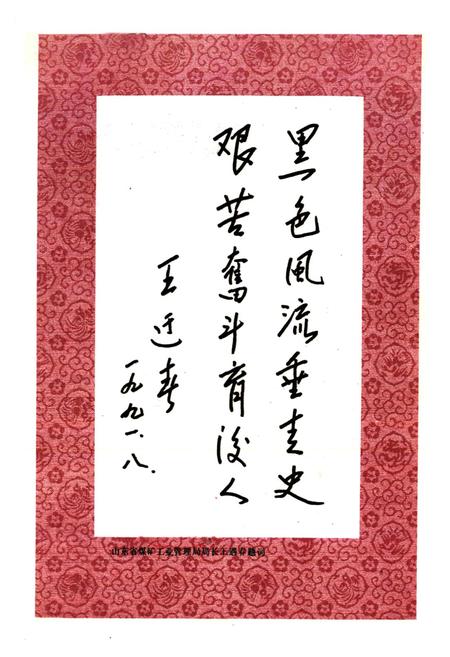 黑色風流垂青史
艰苦奮斗育後人
王遇春
一九九一.八.
山东省煤矿工业管理局局长王遇春题词